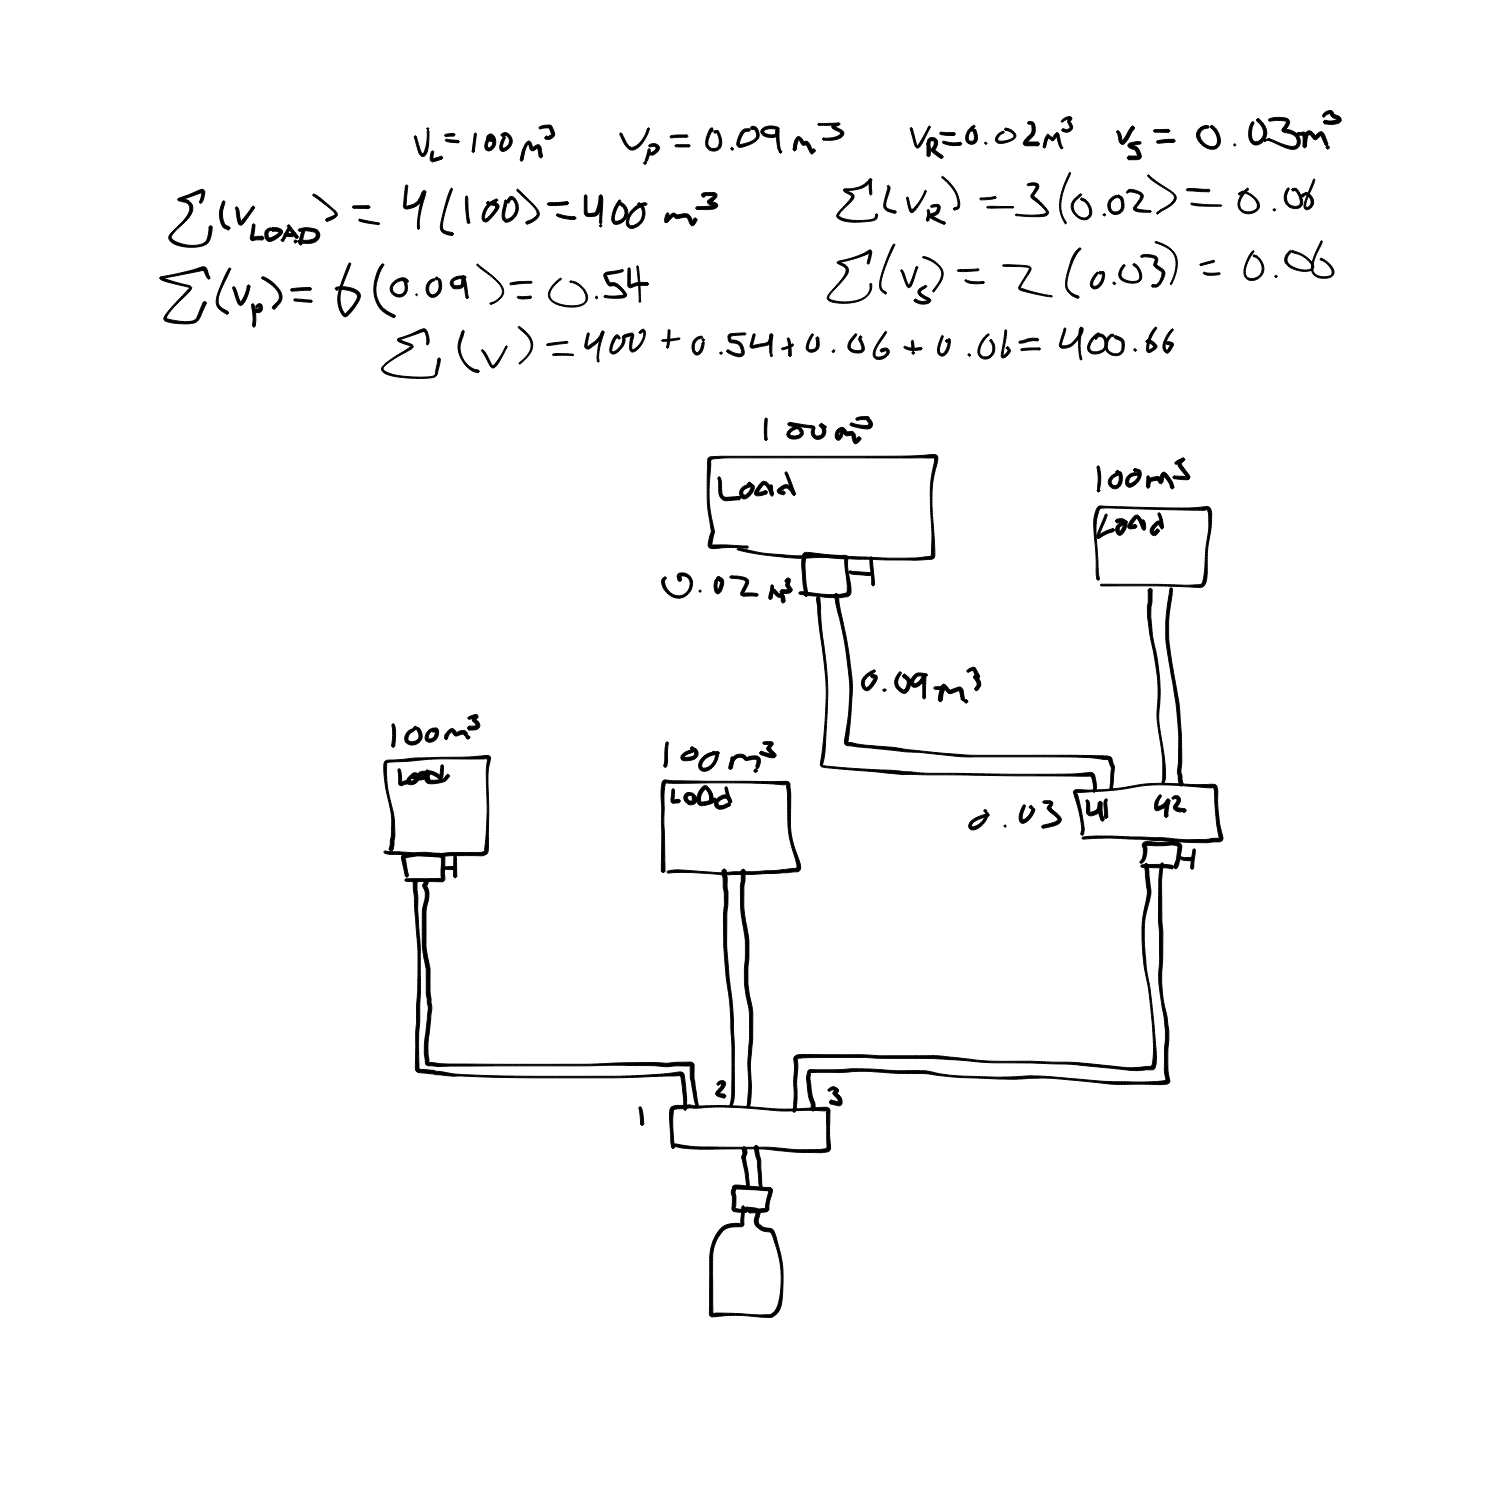 V_L=100m³ V_p=0.09m³ V_R=0.02m³ V_S=0.03m³
∑(V_LOAD)=4(100)=400m³ ∑(V_R)=3(0.02)=0.06
∑(V_p)=6(0.09)=0.54 ∑(V_S)=2(0.03)=0.06
∑(V)=400+0.54+0.06+0.06=400.66
100m³
Load
100m³
Load
0.02m³
0.09m³
100m³
Load
100m³
LOAD
0.03 41 42
1 2 3